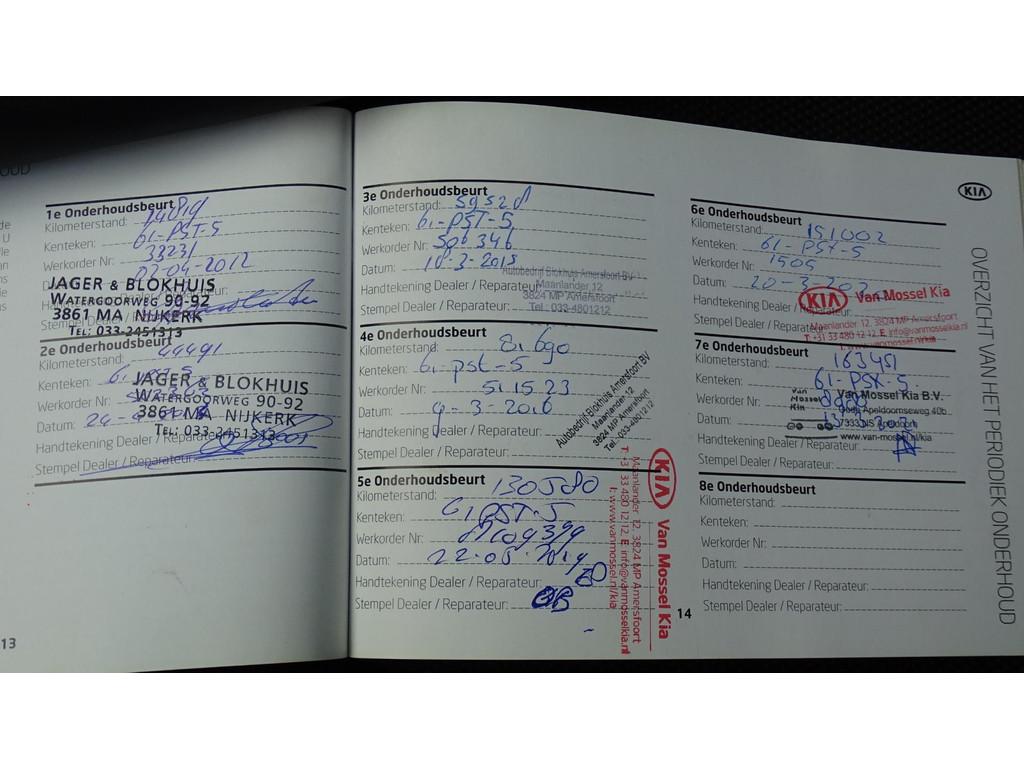 1e Onderhoudsbeurt
Kilometerstand:
Kenteken: 61-PST-5
Werkorder Nr: 33231
02-04-2012
JAGER & BLOKHUIS
WATERGOORWEG 90-92
3861 MA NIJKERK
TEL: 033-2451313
2e Onderhoudsbeurt
Kilometerstand: 44491
Kenteken:
Werkorder Nr:
Datum:
JAGER & BLOKHUIS
WATERGOORWEG 90-92
3861 MA NIJKERK
TEL: 033-2451313
Handtekening Dealer / Reparateur:
Stempel Dealer / Reparateur:
13
3e Onderhoudsbeurt
Kilometerstand: 59528
Kenteken: 61-PST-5
Werkorder Nr: 506346
Datum: 18-3-2015
Autobedrijf Blokhuis Amersfoort BV
Maanlander 12
3824 MP Amersfoort
Tel. 033-4801212
Handtekening Dealer / Reparateur:
Stempel Dealer / Reparateur:
4e Onderhoudsbeurt
Kilometerstand: 81.690
Kenteken: 61-pst-5
Werkorder Nr: 51.15.23
Datum: 9-3-2016
Handtekening Dealer / Reparateur:
Stempel Dealer / Reparateur:
Autobedrijf Blokhuis Amersfoort BV
Maanlander 12
3824 MP Amersfoort
Tel. 033-4801212
5e Onderhoudsbeurt
Kilometerstand: 130580
Kenteken: 61-PST-5
Werkorder Nr:
Datum: 22-05-2019
Handtekening Dealer / Reparateur:
Stempel Dealer / Reparateur:
KIA Van Mossel Kia
Maanlander 12, 3824 MP Amersfoort
T +31 33 480 12 12, E info@vanmosselkia.nl
I: www.vanmossel.nl/kia
14
KIA
6e Onderhoudsbeurt
Kilometerstand: 151002
Kenteken: 61-PST-5
Werkorder Nr: 1505
Datum: 20-3-
Handtekening Dealer / Reparateur:
Stempel Dealer / Reparateur:
KIA Van Mossel Kia
Maanlander 12, 3824 MP Amersfoort
T +31 33 480 12 12, E info@vanmosselkia.nl
I: www.vanmossel.nl/kia
7e Onderhoudsbeurt
Kilometerstand: 163451
Kenteken: 61-PST-5
Werkorder Nr:
Datum:
Van Mossel Kia
Van Mossel Kia B.V.
Oude Apeldoornseweg 40b
7333 NS Apeldoorn
www.van-mossel.nl/kia
Handtekening Dealer / Reparateur:
Stempel Dealer / Reparateur:
8e Onderhoudsbeurt
Kilometerstand:
Kenteken:
Werkorder Nr:
Datum:
Handtekening Dealer / Reparateur:
Stempel Dealer / Reparateur:
OVERZICHT VAN HET PERIODIEK ONDERHOUD